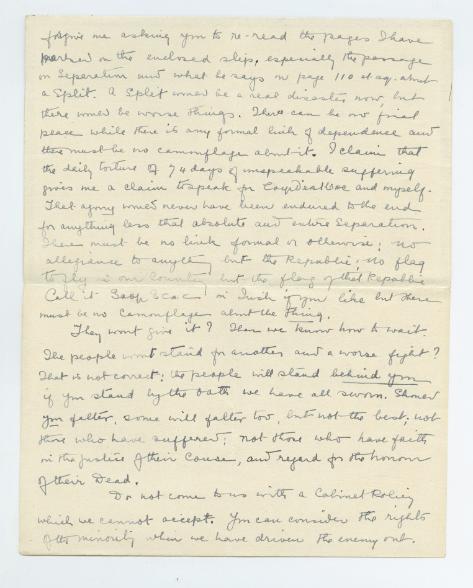 forgive me asking you to re-read the pages I have
marked on the enclosed slip, especially the passage
on Separation and what he says on page 110 et sq. about
a Split. A Split would be a real disaster now, but
there would be worse things. There can be no final
peace while there is any formal link of dependence and
there must be no camouflage about it. I claim that
the daily torture of 74 days of unspeakable suffering
gives me a claim to speak for and myself.
That agony would never have been endured to the end
for anything less that absolute and entire Separation.
There must be no link formal or otherwise; no
allegiance to anyth but the Republic; no flag
to fly in our Country but the flag of that Republic
Call it in Irish if you like but there
must be no camouflage about the thing.
They wont give it? Then we know how to wait.
The people wont stand for another and a worse fight?
That is not correct; the people will stand behind you
if you stand by the oath we have all sworn. Should
you falter, some will falter too, but not the best, not
those who have suffered; not those who have faith
in the justice of their Cause, and regard for the honour
of their Dead.
Do not come to us with a Cabinet Policy
which we cannot accept. You can consider the rights
of the minority when we have driven the enemy out.